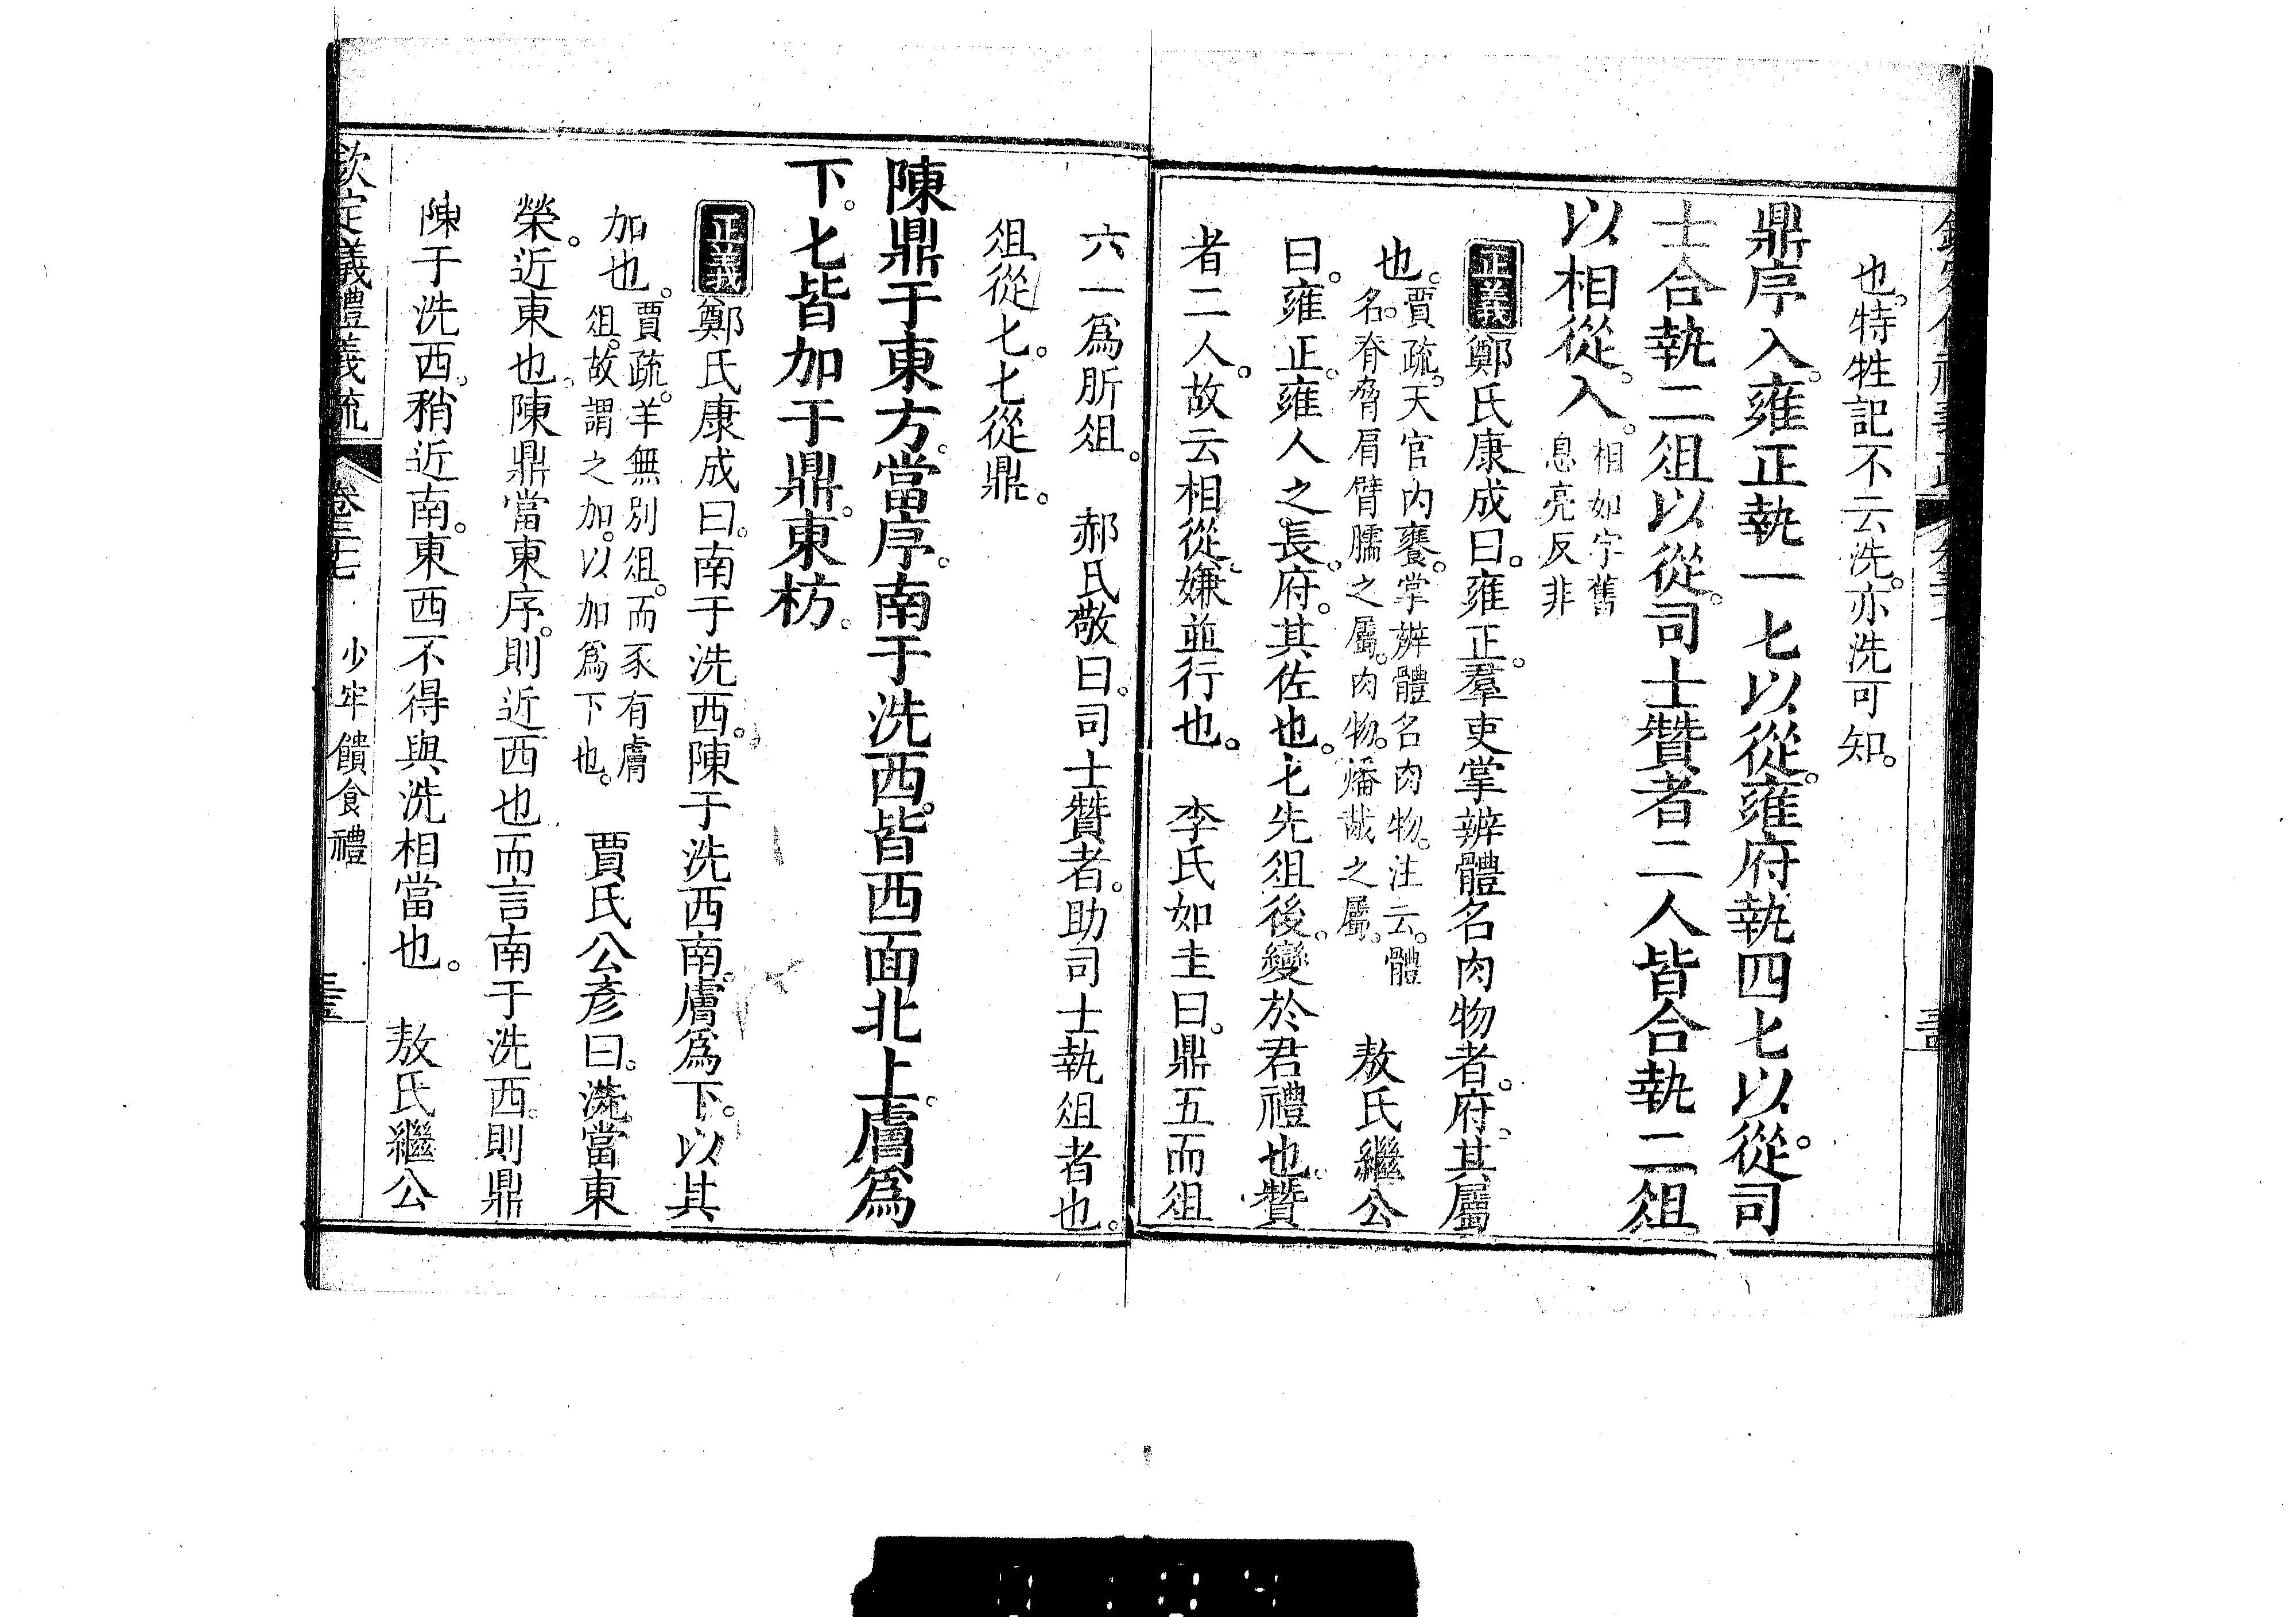 也。特牲記不云洗。亦洗可知。
鼎序入。雍正執一匕以從。雍府執四匕以從。司
士合執二俎以從。司士贊者二人皆合執二俎
以相從。入。相如字舊
息亮反非
正義鄭氏康成曰。雍正。羣吏掌辨體名肉物者。府。其屬
也。賈疏。天官內饔。掌辨體名肉物。注云。體
名。脊脅肩臂臑之屬。肉物。燔胾之屬。 敖氏繼公
曰。雍正。雍人之長。府。其佐也。匕先俎後。變於君禮也。贊
者二人。故云相從。嫌並行也。 李氏如圭曰。鼎五而俎
六一為肵俎。 郝氏敬曰。司士贊者。助司士執俎者也。
俎從匕。匕從鼎。
陳鼎于東方。當序。南于洗西。皆西面北上。膚為
下。匕皆加于鼎。東枋。
正義鄭氏康成曰。南于洗西。陳于洗西南。膚為下。以其
加也。賈疏。羊無別俎。而豕有膚
俎。故謂之加。以加為下也。 賈氏公彥曰。洗當東
榮。近東也。陳鼎當東序。則近西也。而言南于洗西。則鼎
陳于洗西。稍近南。東西不得與洗相當也。 敖氏繼公
欽定儀禮義疏 卷三七 少牢饋食禮